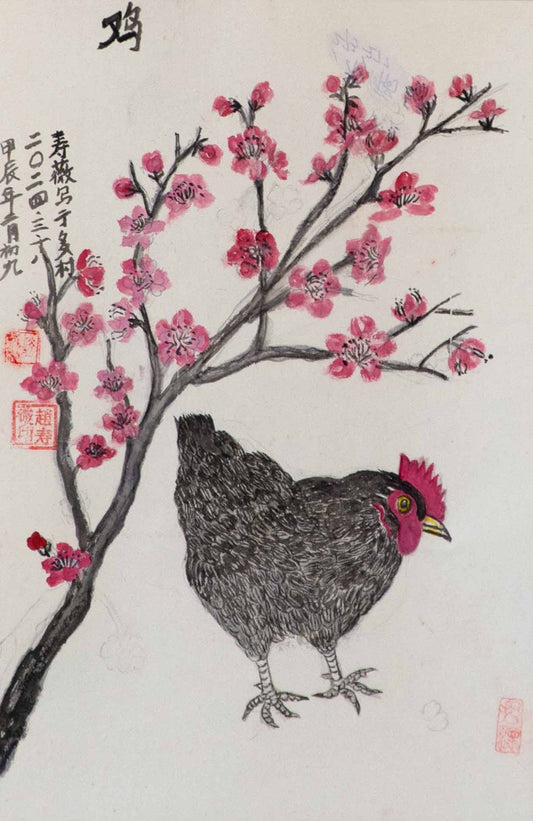 鸡
寿薇写于村
二〇二四.三.十八
甲辰年二月初九
趙寿
薇印